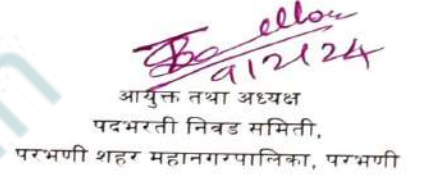 9/2/24
आयुक्त तथा अध्यक्ष
पदभरती निवड समिती,
परभणी शहर महानगरपालिका, परभणी